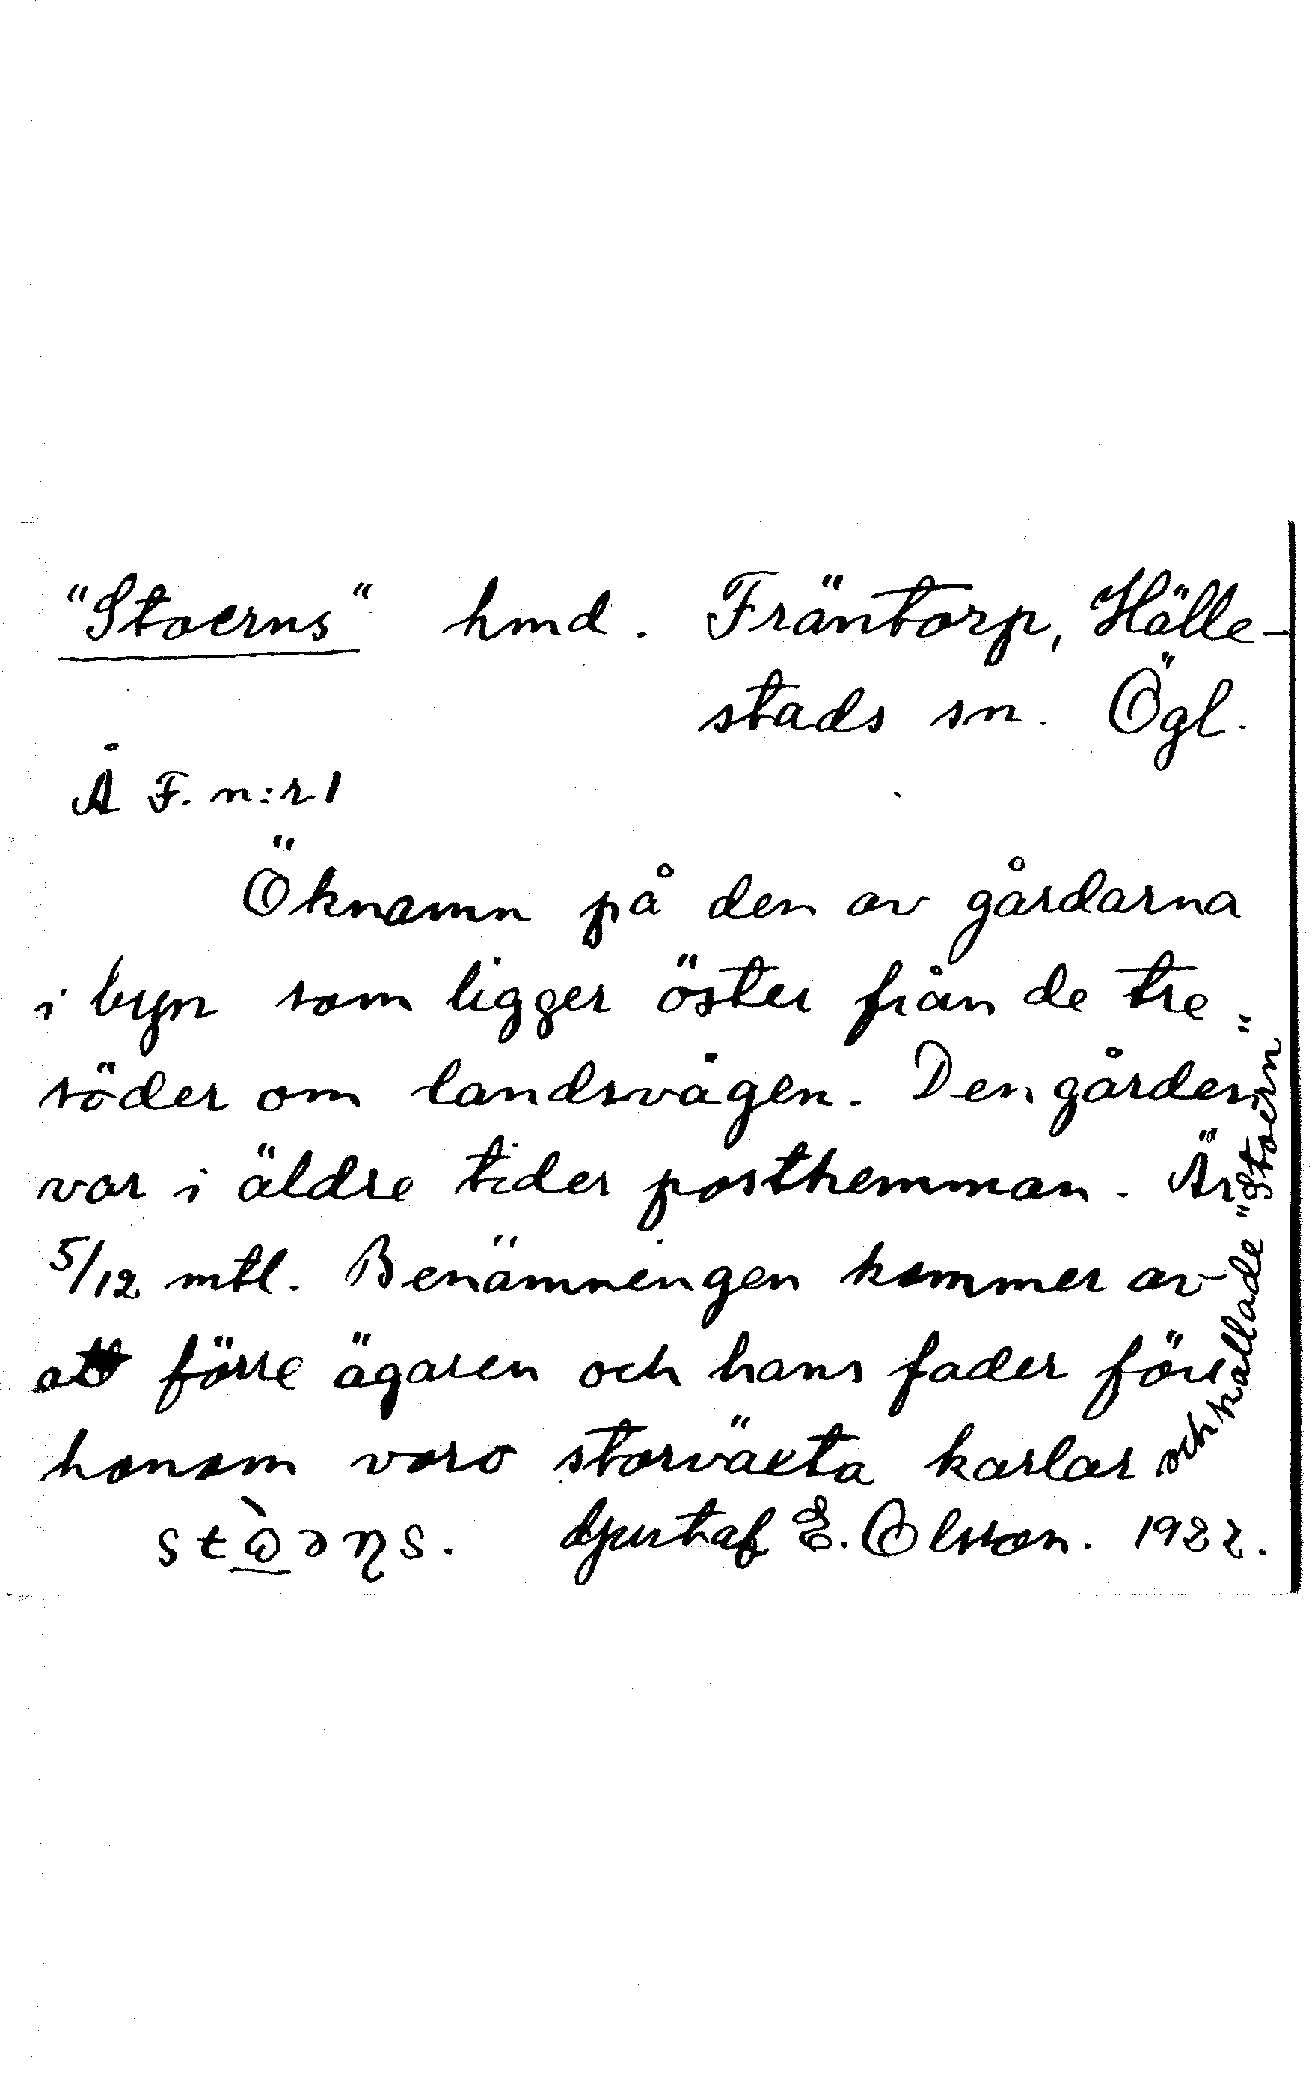 "Stoerns" hmd. Fräntorp, Hälle-
stads sn. Ögl.
Å F. n:r 1
Öknamn på den av gårdarna
i byn som ligger öster från de tre
söder om landsvägen. Den gården
var i äldre tider posthemman. Är
5/12 mtl. Benämningen kommer av
att förre ägaren och hans fader före
honom voro storväxta karlar och kallade "Stoern"
Gustaf E. Olsson. 1922.